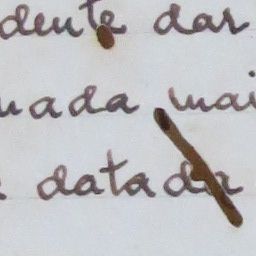 dente dar
nada mai
datada